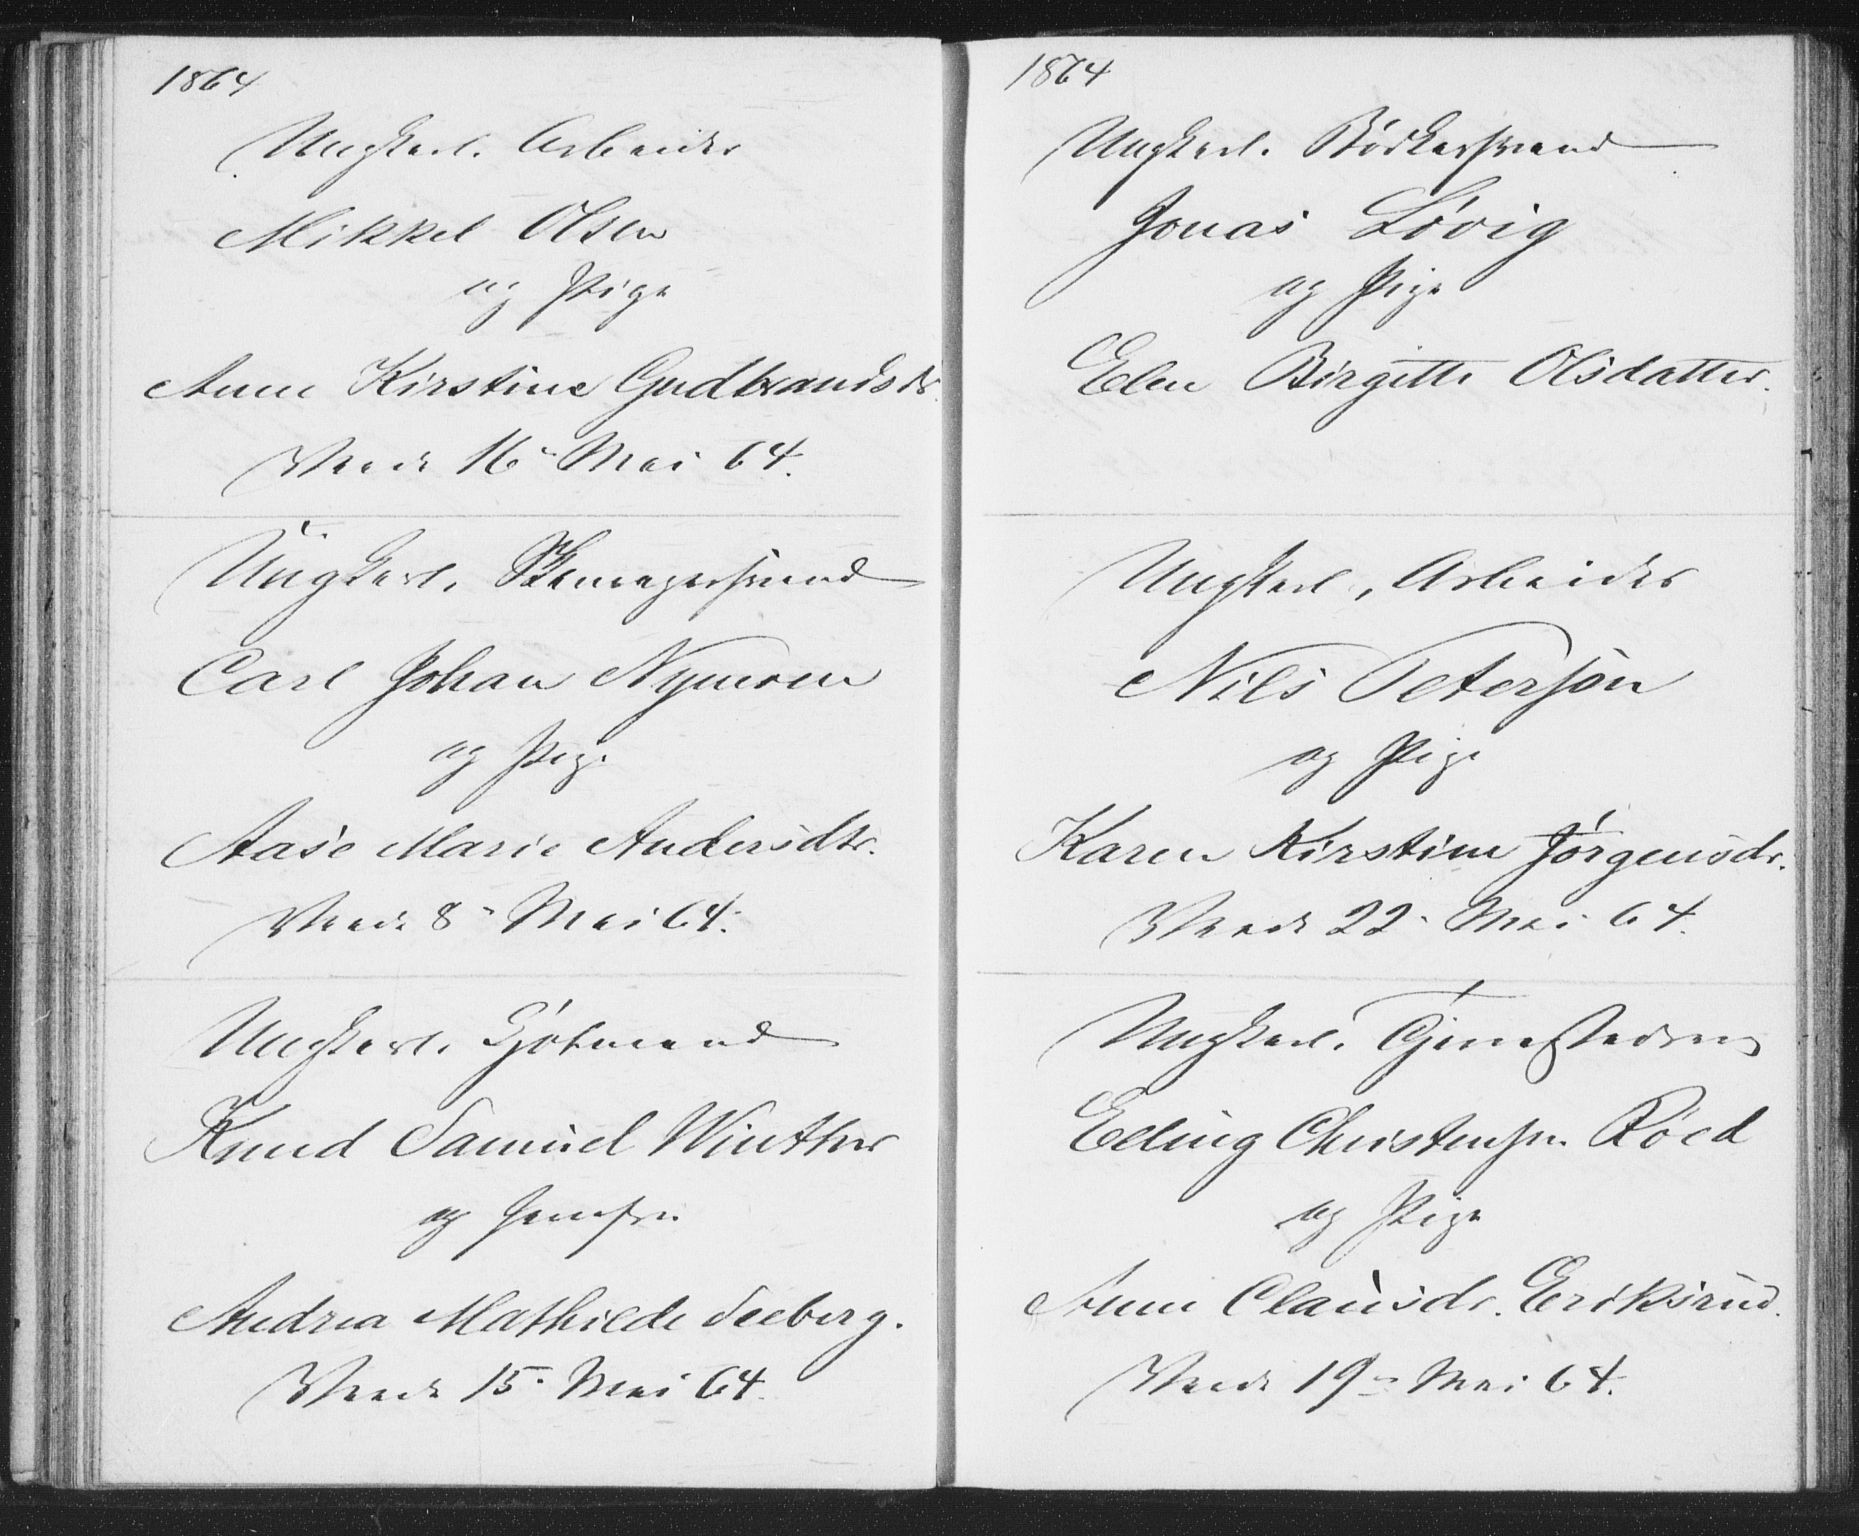 1864
Ungkarl. Arbeider
Mikkel Olsen
og Pige
Anne Kirstine Gudbrandsdr.
Viede 16 Mai 64.
Ungkarl. Skomagersvend
Carl Johan Nymoen
og Pige
Aase Marie Andersdtr.
Viede 8 Mai 64.
Ungkarl. Sjømand
Knud Samuel Winther
og Jomfru
Andrea Mathilde Seeberg.
Viede 15 Mai 64.
1864
Ungkarl. Bødkersvend
Jonas Lövig
og Pige
Elen Birgitte Olsdatter.
Ungkarl, Arbeider
Nils Peterson
og Pige
Karen Kirstine Jörgensdr.
Viede 22 Mai 64.
Ungkarl.
Elling Christensen Röed
og Pige
Anne Clausdr. Eriksrud.
Viede 19 Mai 64.